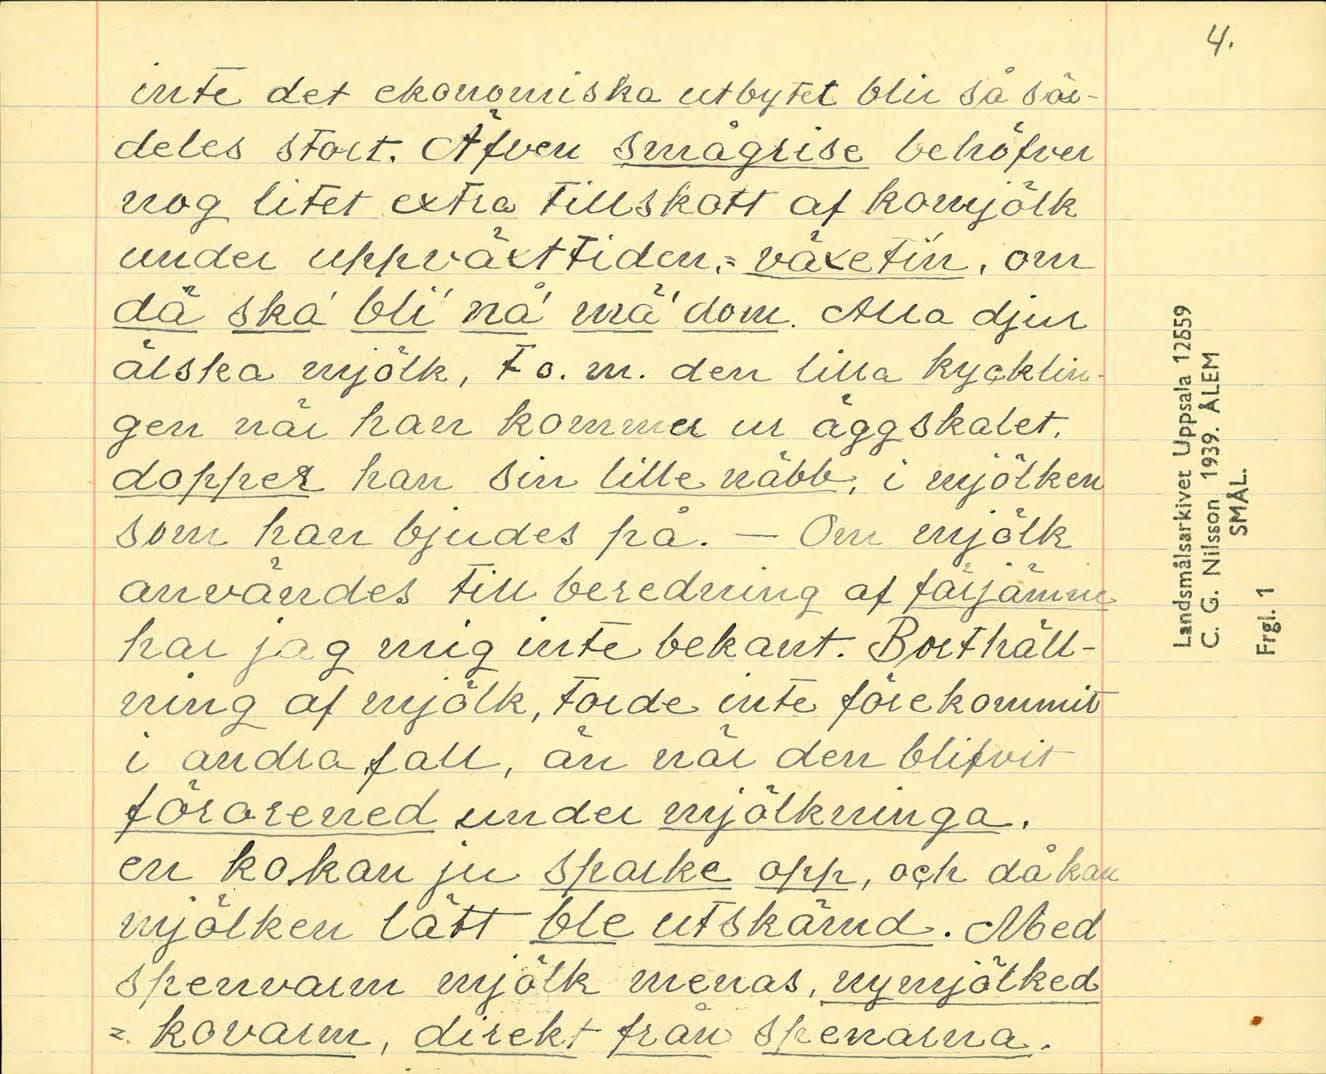 4.
inte det ekonomiska utbytet blir så sär-
deles stort. Äfven smågrise behöfver
nog litet extra tillskott af komjölk
under uppväxttiden,= växetin, om
dä ska' bli' nå' mä' dom. Alla djur
älska mjölk, t o. m. den lilla kycklin-
gen när han kommer ur äggskalet,
dopper han sin lille näbb, i mjölken
som han bjudes på. — Om mjölk
användes till beredning af färjämne
har jag mig inte bekant. Borthäll-
ning af mjölk, torde inte förekommit
i andra fall, än när den blifvit
förorened under mjölkninga,
en ko kan ju sparke opp, och då kan
mjölken lätt ble utskämd. Med
spenvarm mjölk menas, nymjölked
= kovarm, direkt från spenarna.
Landsmålsarkivet Uppsala 12559
C. G. Nilsson 1939. ÅLEM
SMÅL.
Frgl. 1